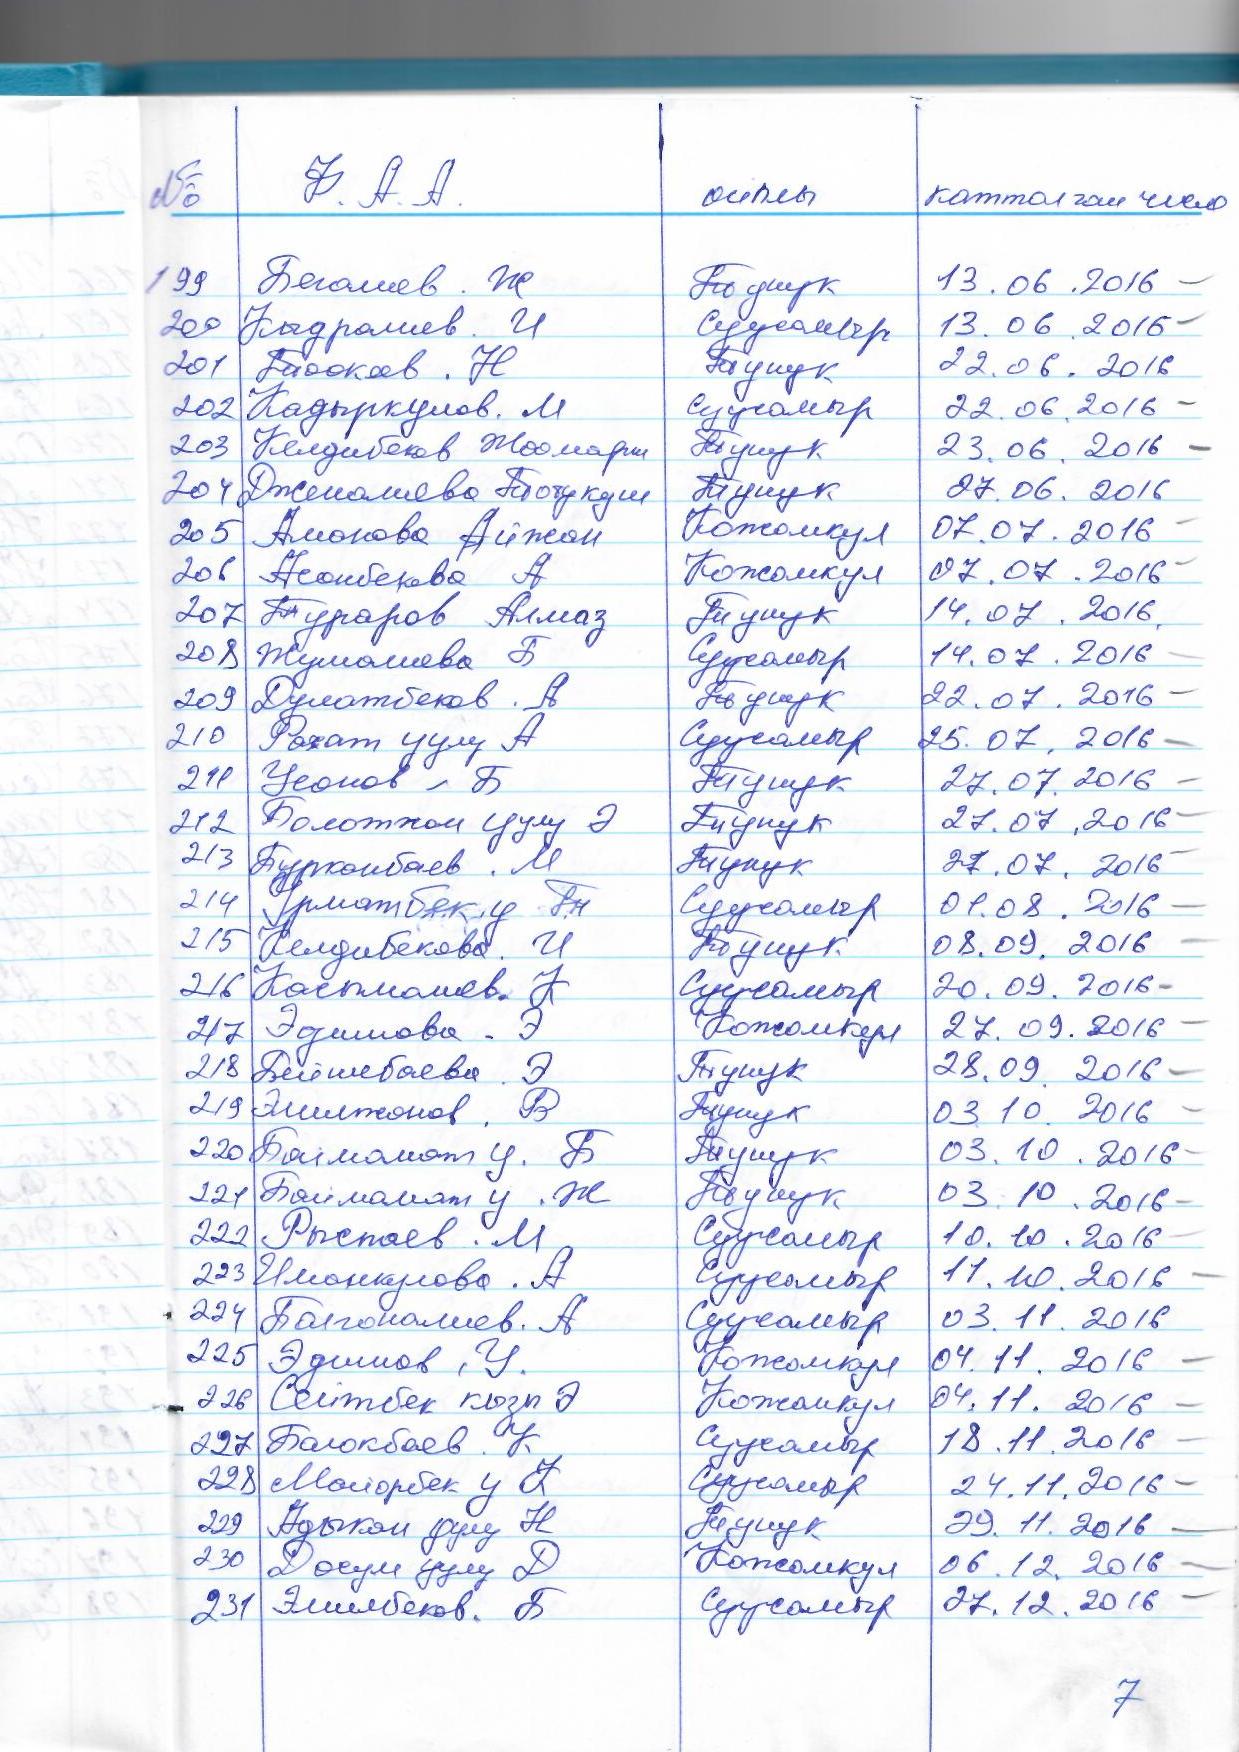 № Ф. А. А. айылы катталган число
199 Бегалиев. Ж Тунук 13.06.2016 –
200 Кыдралиев. И Суусамыр 13.06.2016 –
201 Токоев. Н Тунук 22.06.2016
202 Кадыркулов. М Суусамыр 22.06.2016 –
203 Келдибеков Жоомарт Тунук 23.06.2016 –
204 Дженалиева Тотукуш Тунук 27.06.2016
205 Аманова Айжан Кожомкул 07.07.2016 –
206 Асанбекова А Кожомкул 07.07.2016 –
207 Тураров Алмаз Тунук 14.07.2016.
208 Жумалиева Б Суусамыр 14.07.2016 –
209 Дулатбеков. А Тунук 22.07.2016 –
210 Рахат уулу А Суусамыр 25.07.2016 –
211 Усонов – Б Тунук 27.07.2016 –
212 Болотжан уулу Э Тунук 27.07.2016 –
213 Бурканбаев. М Тунук 27.07.2016 –
214 Урматбек у Тн Суусамыр 01.08.2016 –
215 Келдибекова. И Тунук 08.09.2016 –
216 Касымалиев. К Суусамыр 20.09.2016 –
217 Эдилова. Э Кожомкул 27.09.2016 –
218 Бейшебаева. Э Тунук 28.09.2016 –
219 Эмилжанов. В Тунук 03.10.2016 –
220 Баймамат у. Б Тунук 03.10.2016 –
221 Баймамат у. Ж Тунук 03.10.2016 –
222 Рыспаев. М Суусамыр 10.10.2016 –
223 Иманкулова. А Суусамыр 11.10.2016 –
224 Байгоналиев. А Суусамыр 03.11.2016
225 Эдилов, У. Кожомкул 04.11.2016 –
226 Сейтбек кызы Э Кожомкул 04.11.2016 –
227 Балокбаев. К Суусамыр 18.11.2016 –
228 Майорбек у К Суусамыр 24.11.2016 –
229 Адыкан уулу Н Тунук 29.11.2016 –
230 Досум уулу Д Кожомкул 06.12.2016 –
231 Эмилбеков. Б Суусамыр 27.12.2016 –
7